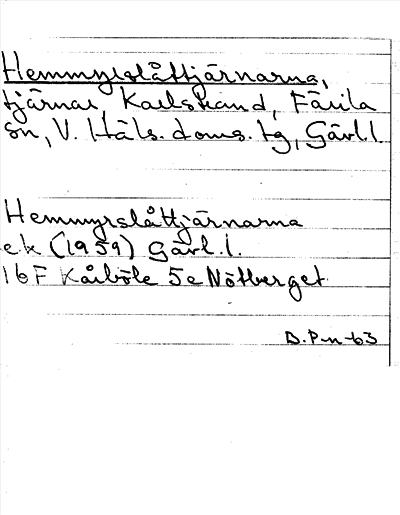 Hemmyrslåttjärnarna,
tjärnar, Karlstrand, Färila
sn, V. Häls. doms. tg, Gävl. l.
Hemmyrslåttjärnarna
ek (1959) Gävl. l.
16F Kårböle 5e Nötberget
D. P-n -63